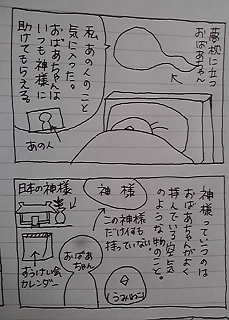 夢枕に立つ
おばあちゃん
私あの人のこと
気に入った。
おばあちゃんは
いつも神様に
助けてもらえる。
あの人
神様っていうのは
おばあちゃんがよく
拝んでいる空店
のような物のこと。
神様
この神様
だけ何も
持っていない。
日本の神様
おばあ
ちゃん
すうけい会
カレンダー
(うみねこ)